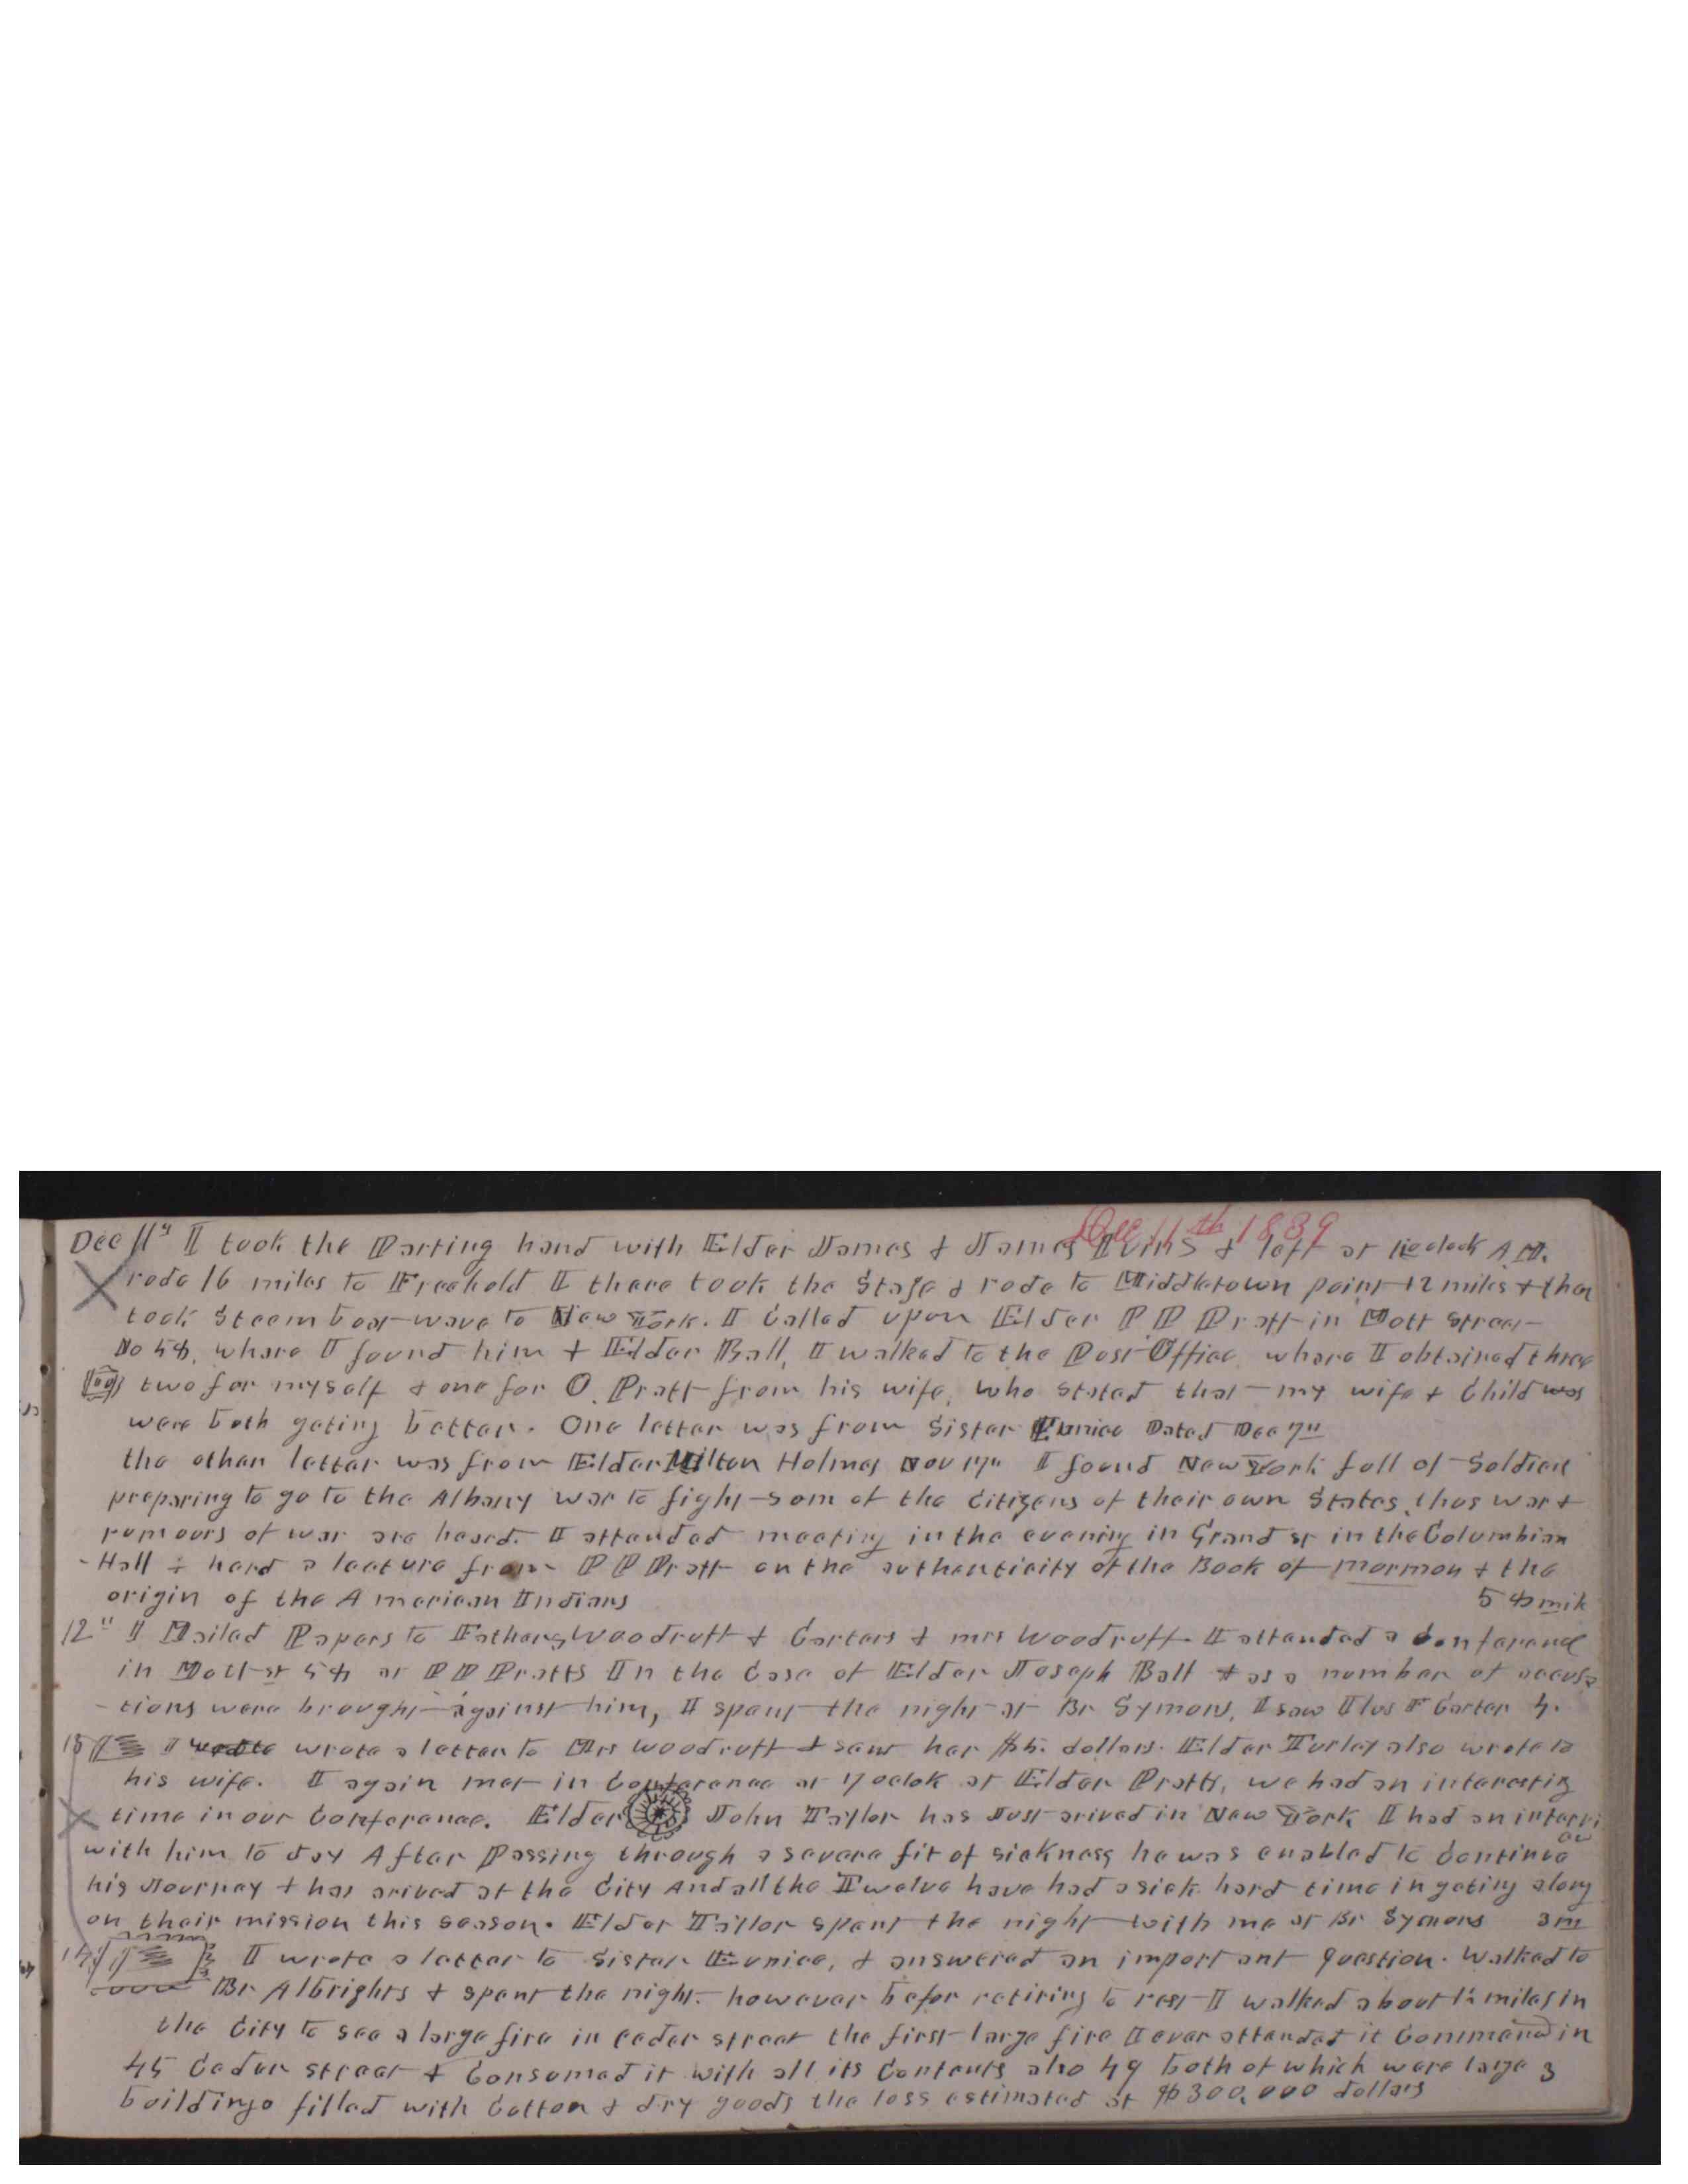 Dec 11th 1839
Dec 11" I took the Parting hand with Elder James & James Ivins & left at oclock A.M.
rode 16 miles to Freehold I there took the Stage & rode to Middletown point 12 miles & then
took Steem boat wave to New York. I Called upon Elder P P Pratt in Mott Street
No 58, where I found him & Elder Ball, I walked to the Post Office where I obtained three
two for myself & one for O. Pratt from his wife, who stated that my wife & Child was
were both geting better. One letter was from Sister Eunice Dated Dec 7"
the other letter was from Elder Milton Holmes Nov 17" I found New York full of Soldiers
preparing to go to the Albany war to fight som of the Citizens of their own States, thus war &
rumours of war are heard. I attended meeting in the evening in Grand st in the Columbian
-Hall & hard a lecture from P P Pratt on the authenticity of the Book of Mormon & the
origin of the American Indians 58 mile
12" I Mailed Papers to Fathers Woodruff & Carters & Mrs Woodruff. I attended a Conference
in Mott st 58 at P P Pratts In the Case of Elder Joseph Ball & as a number of accusa
-tions were brought against him, I spent the night at Br Symons, I saw Ilus F Carter
13 I wrote a letter to Mrs Woodruff & sent her $5. dollars. Elder Turley also wrote to
his wife. I again met in Conference at 7 oclok at Elder Pratts, we had an interesting
time in our Conference. Elder John Taylor has Just arived in New York I had an intervi
ew
with him to day After Passing through a severe fit of sickness he was enabled to Continue
his Journey & has arived at the City And all the Twelve have had a sick hard time in geting along
on their mission this season. Elder Taylor spent the night with me at Br Symons 3 m
14 I wrote a letter to Sister Eunice, & answered an important Question. Walked to
Br Albrights & spent the night. however befor retiring to rest I walked about 1½ miles in
the City to see a large fire in ceder street the first large fire I ever attended it Commenced in
45 Ceder street & Consumed it with all its Contents also 49 both of which were large
buildings filled with Cotton & dry goods the loss estimated at $300,000 dollars